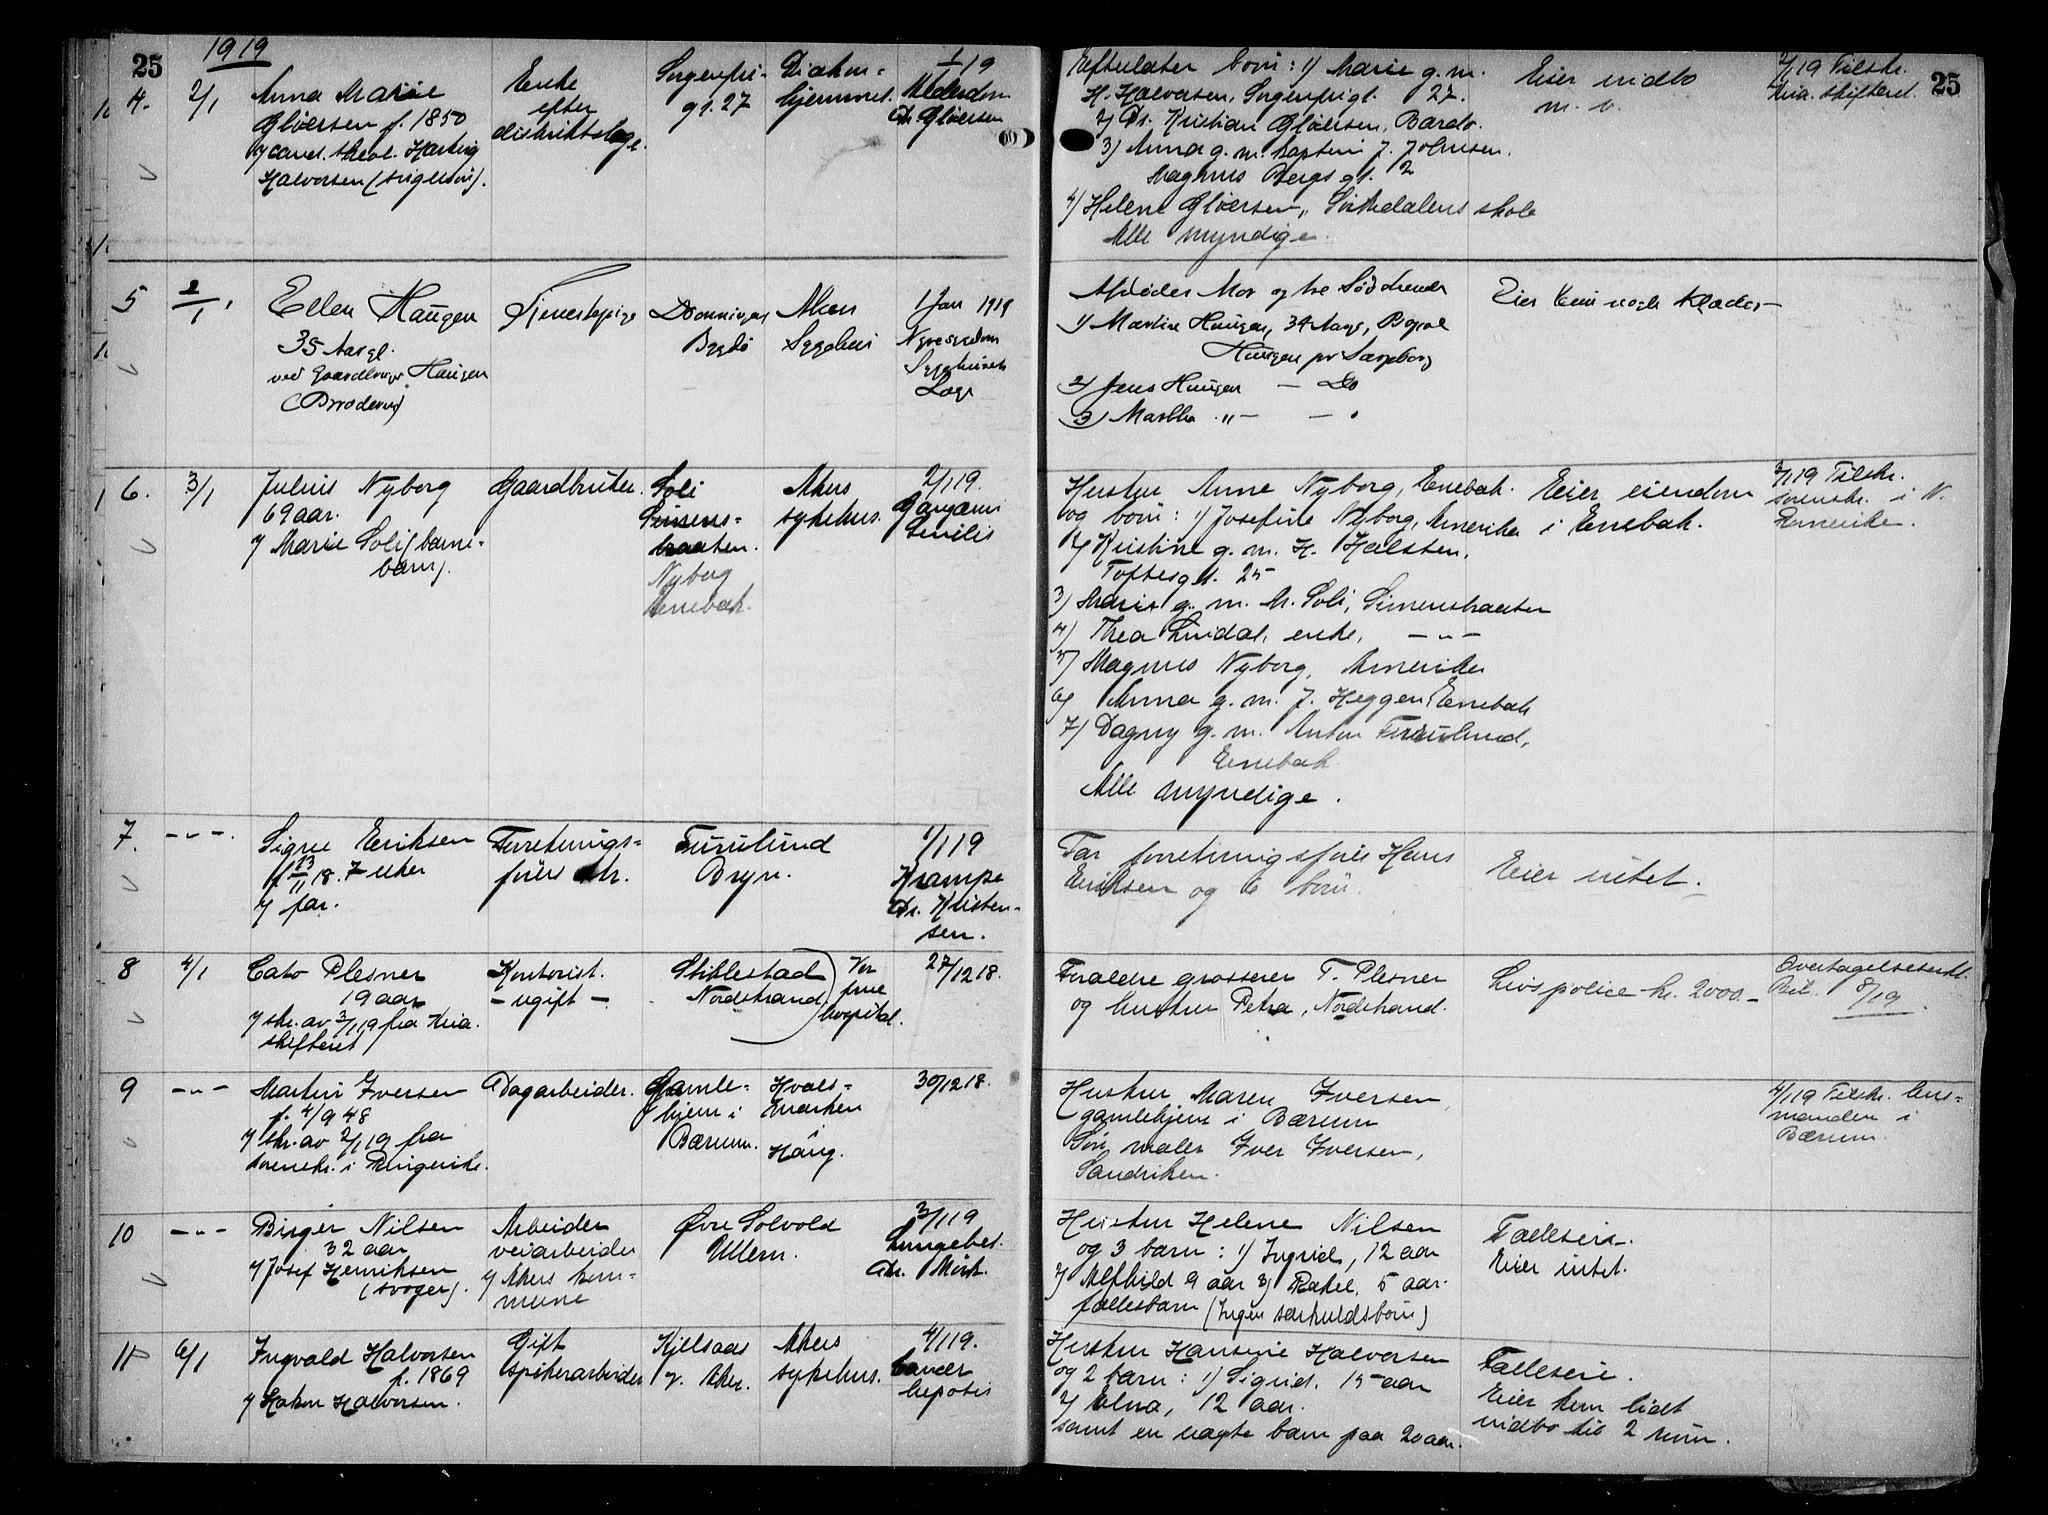 25
1919
4. 2/1
Anna Marie
Gløersen f. 1850
v/ cand. theol. Hartvig
Halvorsen (svigersøn).
Enke
efter
distriktslæge.
Sorgenfri-
gt. 27
Diakon-
hjemmet.
1/1 19
Alderdom
Dr. Gløersen
Efterlater børn: 1) Marie g. m.
H. Halvorsen, Sorgenfrigt. 27.
2) Dr. Kristian Gløersen, Bardo.
3) Anna g. m. kaptein J. Johnsen,
Magnus Bergs gt. 2
4) Helene Gløersen, Sørkedalens skole
Alle myndige.
Eier indbo
m. v.
2/1 19 Tilskr.
Kria. skifteret.
25
5 2/1
Ellen Haugen
35 Aar gl.
ved Gaardbruger Haugen
(Broderen)
Tjenestepige
Dronningen
Bygdø
Akers
Sygehus
1 Jan 1919
Nyresygdom
Sygehusets
Læge
Afdødes Mor og tre Sødskende
1) Martin Haugen, 34 Aar,
Haugen pr Sarpsborg
2) Jens Haugen — Do
3) Martha -"- — "
Eier kun nogle Klæder
6. 3/1
Julius Nyborg
69 aar.
v/ Marie Soli (barne-
barn).
Gaardbruker.
Soli
Simens-
braaten.
Nyborg
Enebak.
Akers
sykehus.
2/1 19.
Gangræn
senilis
Hustru Anne Nyborg, Enebak.
og børn: 1) Josefine Nyborg, Amerika
2) Kristine g. m. H. Halsten,
Toftesgt. 25
3) Marie g. m. M. Soli, Simensbraaten
4) Thea Lindal, enke, — " —
5) Magnus Nyborg, Amerika
6) Anna g. m. J. Heggen, Enebak
7) Dagny g. m. Anton Furulund,
Enebak
Alle myndige.
Eier eiendom
i Enebak.
3/1 19 Tilskr.
sorenskr. i N.
Romerike.
7. — " —
Signe Eriksen
f. 13/11 18. 7 uker
v/ far.
Forretnings-
fører
Furulund
Bryn.
1/1 19
Krampe
Dr. Kristen-
sen.
Far forretningsfører Hans
Eriksen og 6 børn.
Eier intet.
8 4/1
Cato Plesner
19 aar
v/ skr. av 3/1 19 fra Kria.
skifteret
Kontorist.
— ugift —
Stiklestad
Nordstrand.
Vor
frue
hospital.
27/12 18.
Foreldre grosserer T. Plesner
og hustru Petra, Nordstrand.
Livspolice kr. 2000.-
Overtagelseserkl.
Bil. 8/19
9 — " —
Martin Iversen
f. 4/9 48
v/ skr. av 2/1 19 fra
sorenskr. i Ringerike.
Dagarbeider.
Gamle-
hjem i
Bærum.
Hvals-
marken
Haug.
30/12 18.
Hustru Maren Iversen,
gamlehjem i Bærum
Søn maler Iver Iversen,
Sandviken.
4/1 19 Tilskr. lens-
manden i
Bærum.
10 — " —
Birger Nilsen
32 aar
v/ Josef Henriksen
(svoger).
Arbeider
veiarbeider
v/ Akers kom-
mune
Øvre Solvold
Ullern.
3/1 19
Lungebet.
Dr. Mørk.
Hustru Helene Nilsen
og 3 barn: 1) Ingrid, 12 aar
2) Alfhild 9 aar 3) Rakel, 5 aar.
fællesbarn (Ingen særkuldsbørn)
Fælleseie.
Eier intet.
11 6/1
Ingvald Halvorsen
f. 1869
v/ Hakon Halvorsen.
Gift
spikerarbeider
Kjelsaas
v. Aker.
Akers
sykehus.
4/1 19.
Cancer
hepatis
Hustru Hansine Halvorsen
og 2 barn: 1) Sigrid, 15 aar
2) Elna, 12 aar.
samt en uægte barn paa 20 aar.
Fælleseie.
Eier kun lidt
indbo til 2 rum.